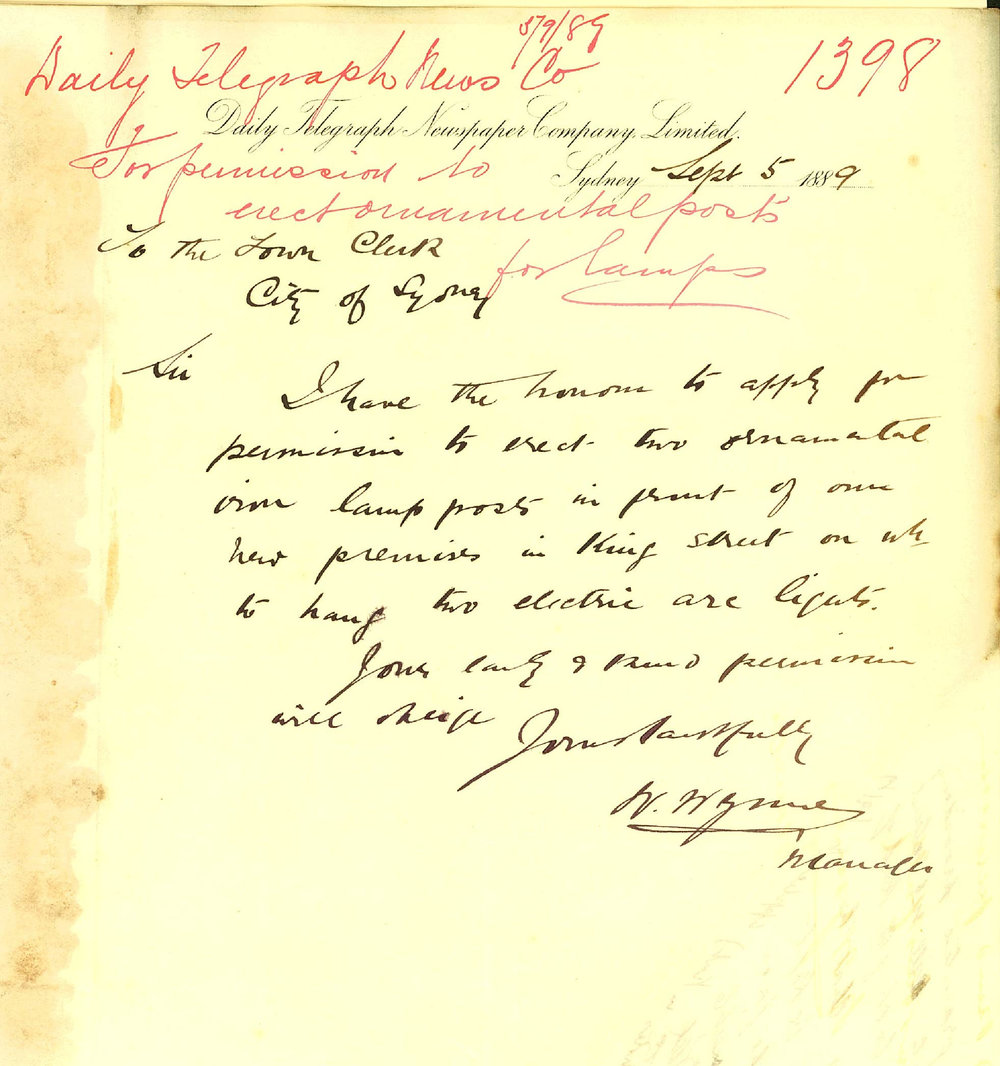 5/9/89
Daily Telegraph News Co 1398
Daily Telegraph Newspaper Company, Limited.
For permission to
Sydney Sept 5 1889
erect ornamental posts
To the Town Clerk
for lamps
City of Sydney
Sir
I have the honour to apply for
permission to erect two ornamental
iron lamp posts in front of our
new premises in King Street on wh
to hang two electric arc lights.
Your early & kind permission
will oblige
Yours faithfully
W. Wynne
Manager